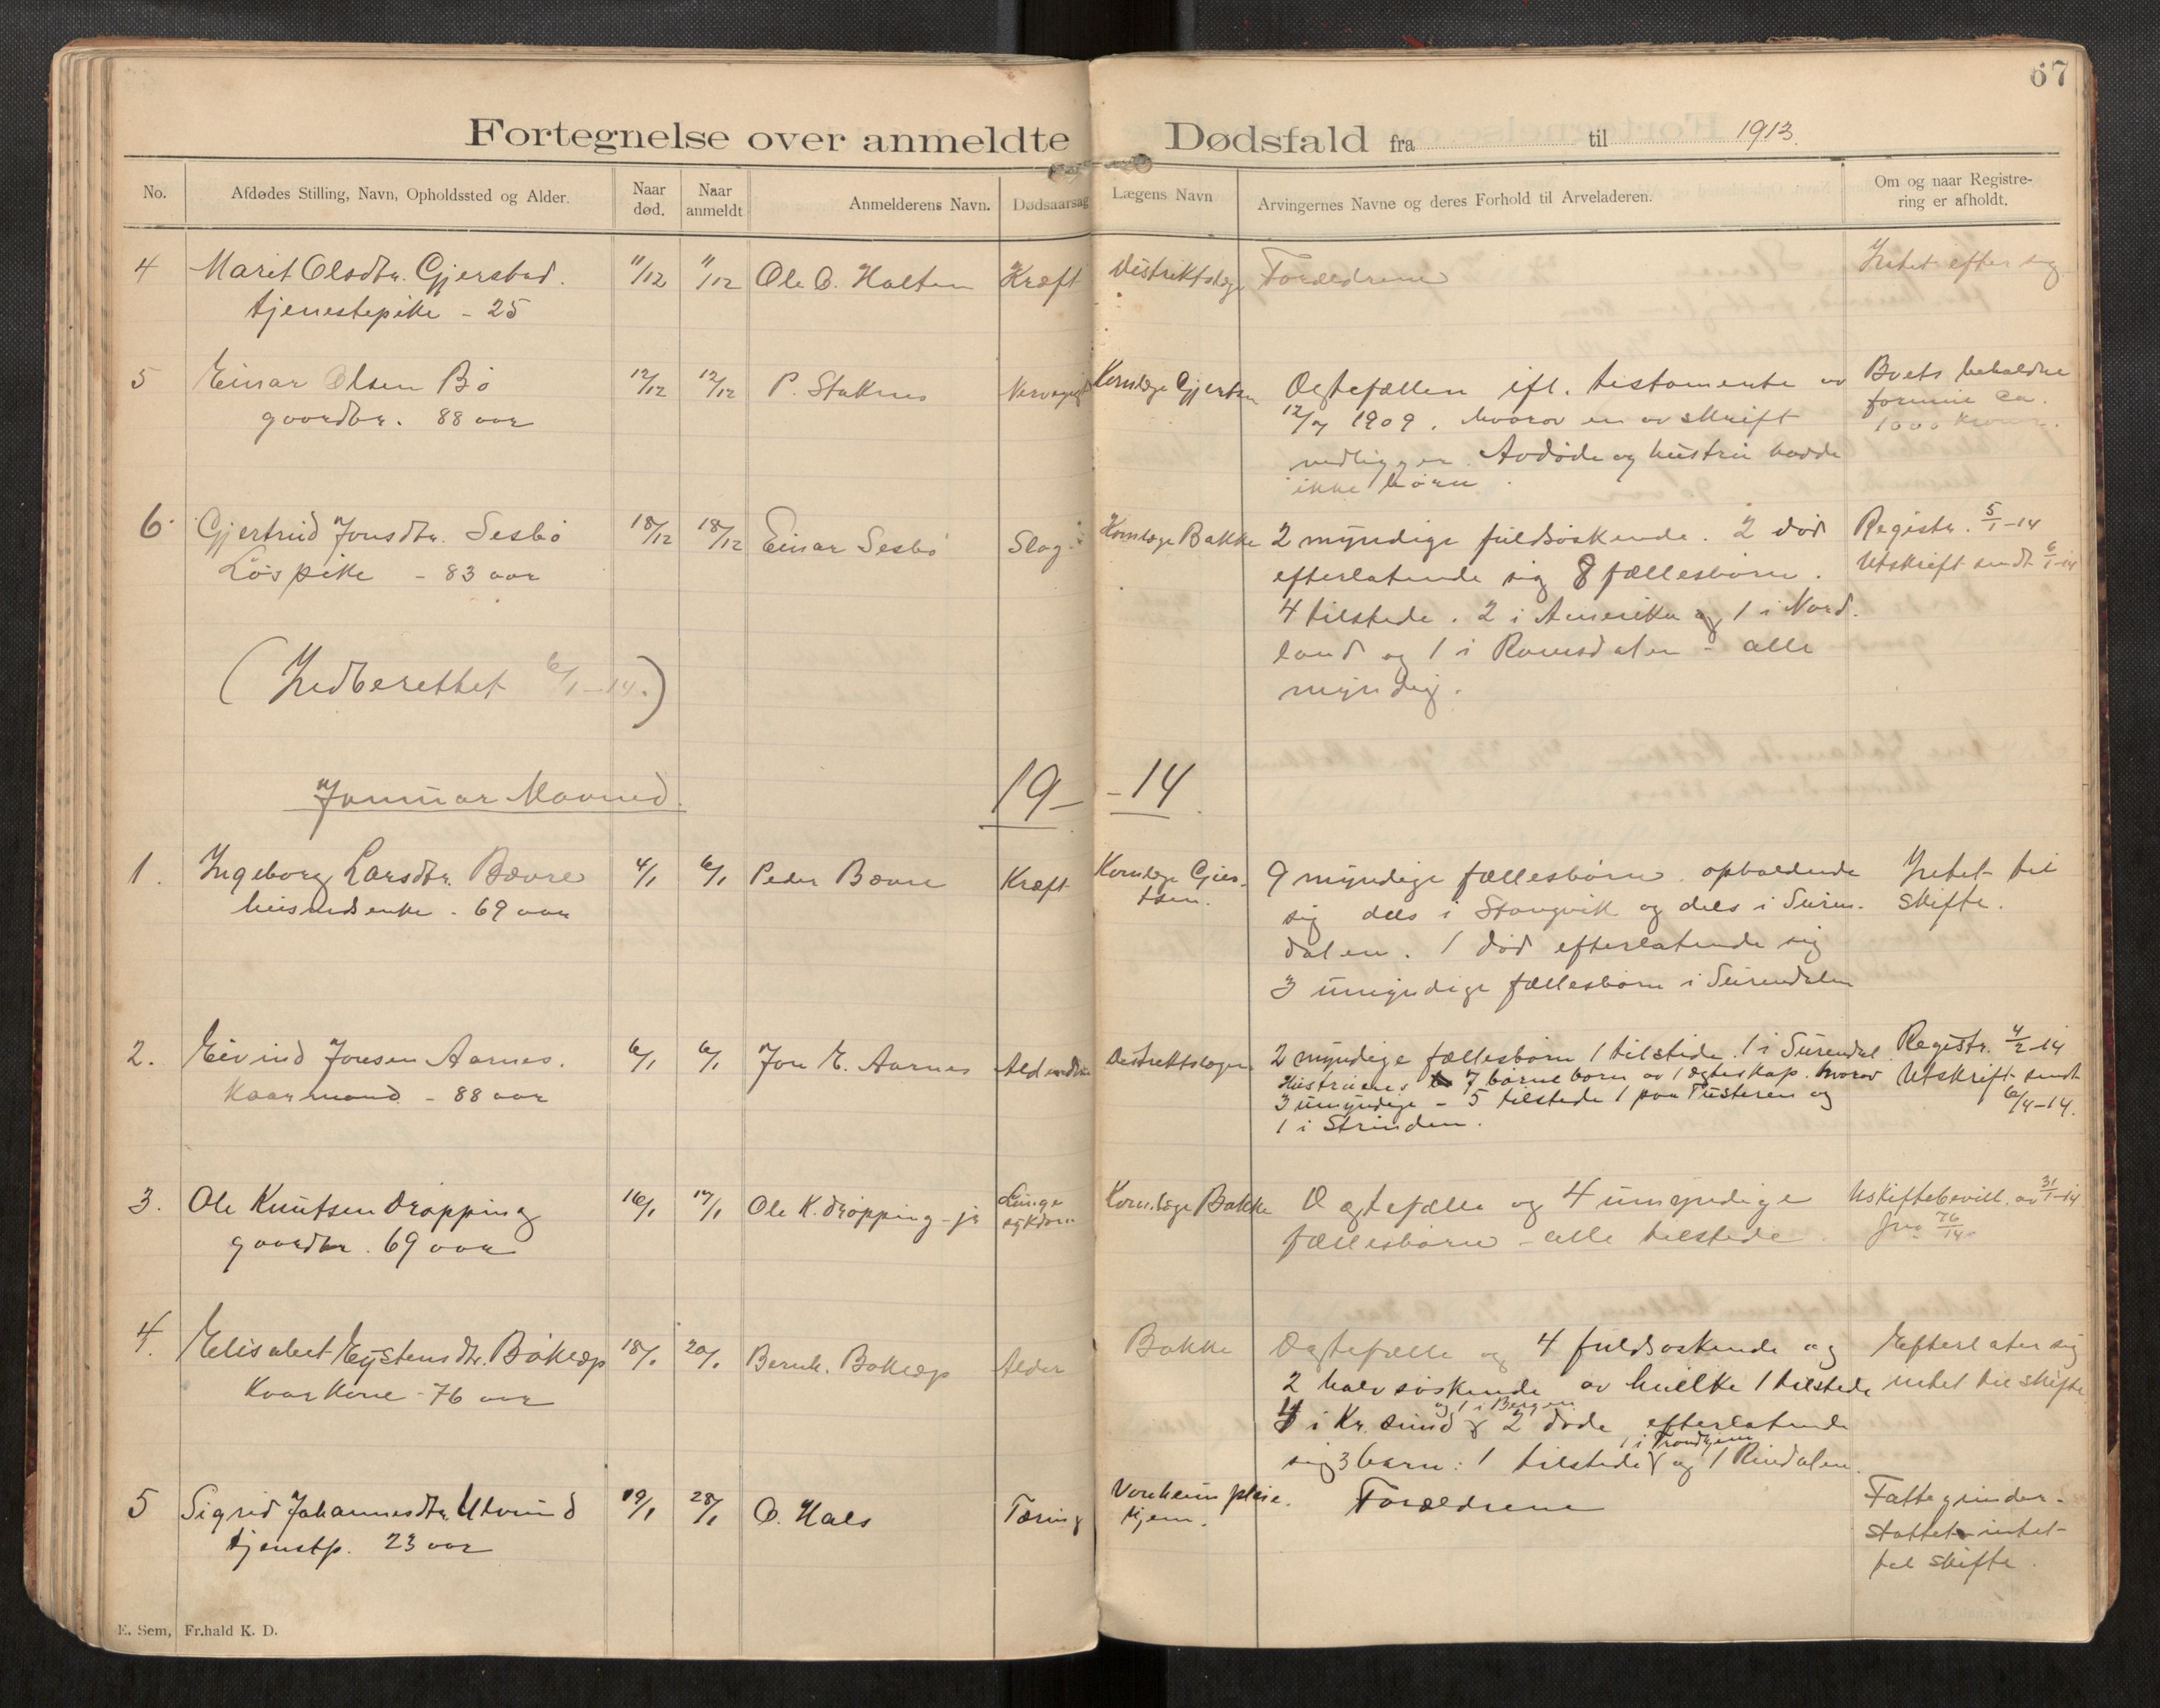 67
Fortegnelse over anmeldte Dødsfald fra til 1913.
No. Afdødes Stilling, Navn, Opholdssted og Alder. Naar død. Naar anmeldt Anmelderens Navn. Dødsaarsag Lægens Navn Arvingernes Navne og deres Forhold til Arveladeren. Om og naar Registrering er afholdt.
4 Marit Olsdtr. Gjersted. 11/12 11/12 Ole O. Holten Kræft Distriktslæge Forældrene Intet efter sig
tjenestepike - 25
5 Einar Olsen Bø 12/12 12/12 P. Stuknes Kornlæge Gjertsen Ogtefællen ifl. testamente av Boets beholdne
gaardbr. 88 aar 12/7 1909. hvorav en avskrift formue ca.
vedligger. Avdøde og hustru hadde 1000 kroner.
ikke børn.
6. Gjertrud Jonsdtr. Sesbø 18/12 18/12 Einar Sesbø Slag Komlæge Bakke 2 myndige fuldsøskende. 2 død Registr. 5/1-14
Løspike - 83 aar efterlatende sig 8 fællesbørn. Utskrift sendt 6/1-14
4 tilstede. 2 i Amerika og 1 i Nord-
land og 1 i Romsdalen - alle
myndig.
(Indberettet 6/1-14.)
Januar Maaned. 19- -14
1. Ingeborg Larsdtr. Bævre 4/1 6/1 Peder Bævre Kræft Komlæge Gjer- 9 myndige fællesbørn. opholdende Intet til
husmdsenke. 69 aar tsen. sig dels i Stangvik og dels i Suren- Skifte.
dalen. 1 død efterlatende sig
3 umyndige fællesbørn i Surendalen
2. Eivind Jonsen Aarnes. 6/1 6/1 Jon E. Aarnes Distriktslægen 2 myndige fællesbørn 1 tilstede. 1 i Surendal. Registr. 4/2-14
Kaarmand - 88 aar Hustruens 7 børnebørn av 1 ægteskap. hvorav Utskrift sendt
3 umyndige - 5 tilstede 1 paa Tusteren og 6/4-14.
1 i Strinden.
3. Ole Knutsen Drøpping 16/1 17/1 Ole K. Drøpping - jr Lunge Kom.læge Bakke Ogtefælle og 4 umyndige Uskiftebevill. av 31/1-14
gaardbr. 69 aar sykdom fællesbørn - alle tilstede. jno 76/14.
4. Elisabet Eystensdtr. Bøklep 18/1 20/1 Bernh. Bøklep Alder Bakke Ogtefælle og 4 fuldsøskende og Efterlater sig
Kaarkone - 76 aar 2 halvsøskende av hvilke 1 tilstede intet til skifte
4 i Kr. sund og 1 i Bergen 2 døde efterlatende
sig 3 barn: 1 tilstede 1 i Trondhjem og 1 Rindalen.
5 Sigrid Johannesdtr. Utvind 19/1 28/1 O. Hals Tæring Voreheim pleie- Forældrene Fattigunder-
tjenstp. 23 aar hjem. støttet - intet
til skifte.
E. Sem, Fr.hald K. D.